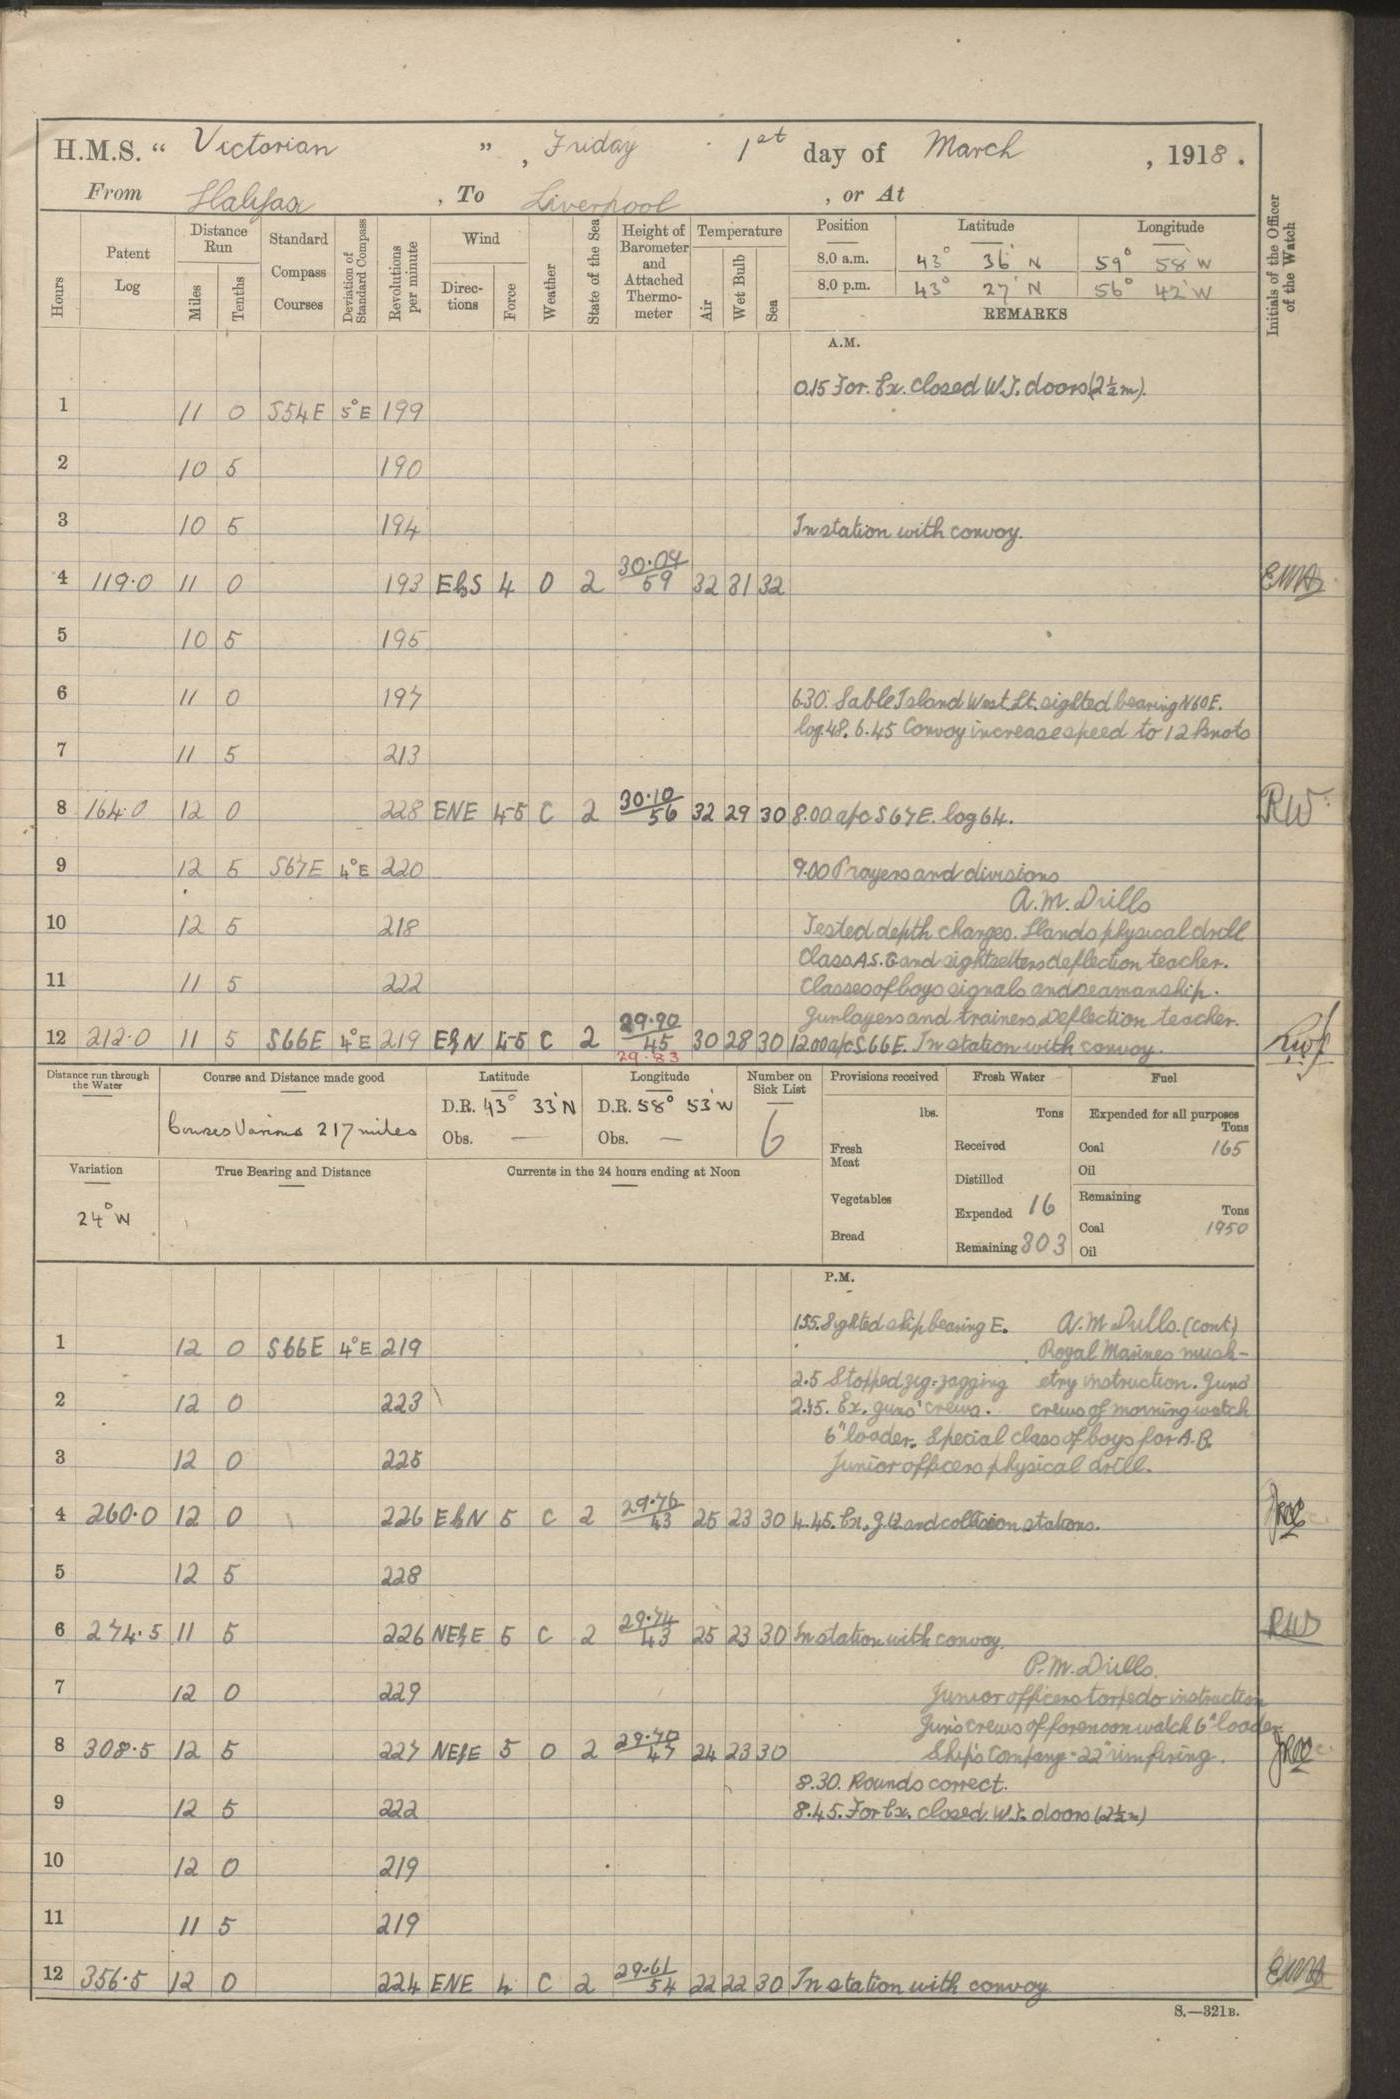 H.M.S. “ Victorian ” , Friday 1st day of March , 1918.
From Halifax , To Liverpool , or At
Hours Patent Log Distance Run Miles Tenths Standard Compass Courses Deviation of Standard Compass Revolutions per minute Wind Direc-tions Force Weather State of the Sea Height of Barometer and Attached Thermo-meter Temperature Air Wet Bulb Sea Position Latitude Longitude Initials of the Officer of the Watch
8.0 a.m. 43° 36' N 59° 58' W
8.0 p.m. 43° 27' N 56° 42' W
REMARKS
A.M.
0.15 For. Ex. closed W.T. doors (2½m).
1 11 0 S54E 5°E 199
2 10 5 190
3 10 5 194 In station with convoy.
4 119.0 11 0 193 EbS 4 O 2 30.04 59 32 31 32
5 10 5 195
6 11 0 197 6.30. Sable Island West Lt. sighted bearing N60E.
log.48. 6.45 Convoy increase speed to 12 knots
7 11 5 213
8 164.0 12 0 228 ENE 4-5 C 2 30.10 56 32 29 30 8.00 a/c S67E. log 64.
9 12 5 S67E 4°E 220 9.00 Prayers and divisions
A.M. Drills
10 12 5 218 Tested depth charges. Hands physical drill
Class A.S.G and sightsetters deflection teacher.
11 11 5 222 Classes of boys signals and seamanship.
Gunlayers and trainers Deflection teacher.
12 212.0 11 5 S66E 4°E 219 EbN 4-5 C 2 29.90 45 30 28 30 12.00 a/c S.66E. In station with convoy.
29.83
Distance run through the Water Course and Distance made good Latitude Longitude Number on Sick List Provisions received Fresh Water Fuel
D.R. 43° 33' N D.R. 58° 53' W 6 lbs. Tons Expended for all purposes Tons
Courses Various 217 miles Obs. — Obs. — Fresh Meat Received Coal 165
Oil
Variation True Bearing and Distance Currents in the 24 hours ending at Noon Distilled
24° W Vegetables Expended 16 Remaining Tons
Coal 1950
Bread Remaining 303 Oil
P.M.
1.55. Sighted ship bearing E. A.M Drills. (cont)
1 12 0 S66E 4°E 219 Royal Marines musk-
2.5 Stopped zig-zagging etry instruction. Guns
2 12 0 223 2.45. Ex. guns' crews. crews of morning watch
6" loader. Special class of boys for A.B.
3 12 0 225 Junior officers physical drill.
4 260.0 12 0 226 EbN 5 C 2 29.76 43 25 23 30 4.45. Ex. G.Q and collision stations.
5 12 5 228
6 274.5 11 5 226 NEbE 5 C 2 29.74 43 25 23 30 In station with convoy.
P.M. Drills.
7 12 0 229 Junior officers torpedo instruction
Guns crews of forenoon watch 6" loader
8 308.5 12 5 227 NEbE 5 O 2 29.70 47 24 23 30 Ship's Company - 22" rim firing.
8.30. Rounds correct.
9 12 5 222 8.45. For Ex. closed W.T. doors (2½m)
10 12 0 219
11 11 5 219
12 356.5 12 0 224 ENE 4 C 2 29.61 54 22 22 30 In station with convoy
S.—321B.